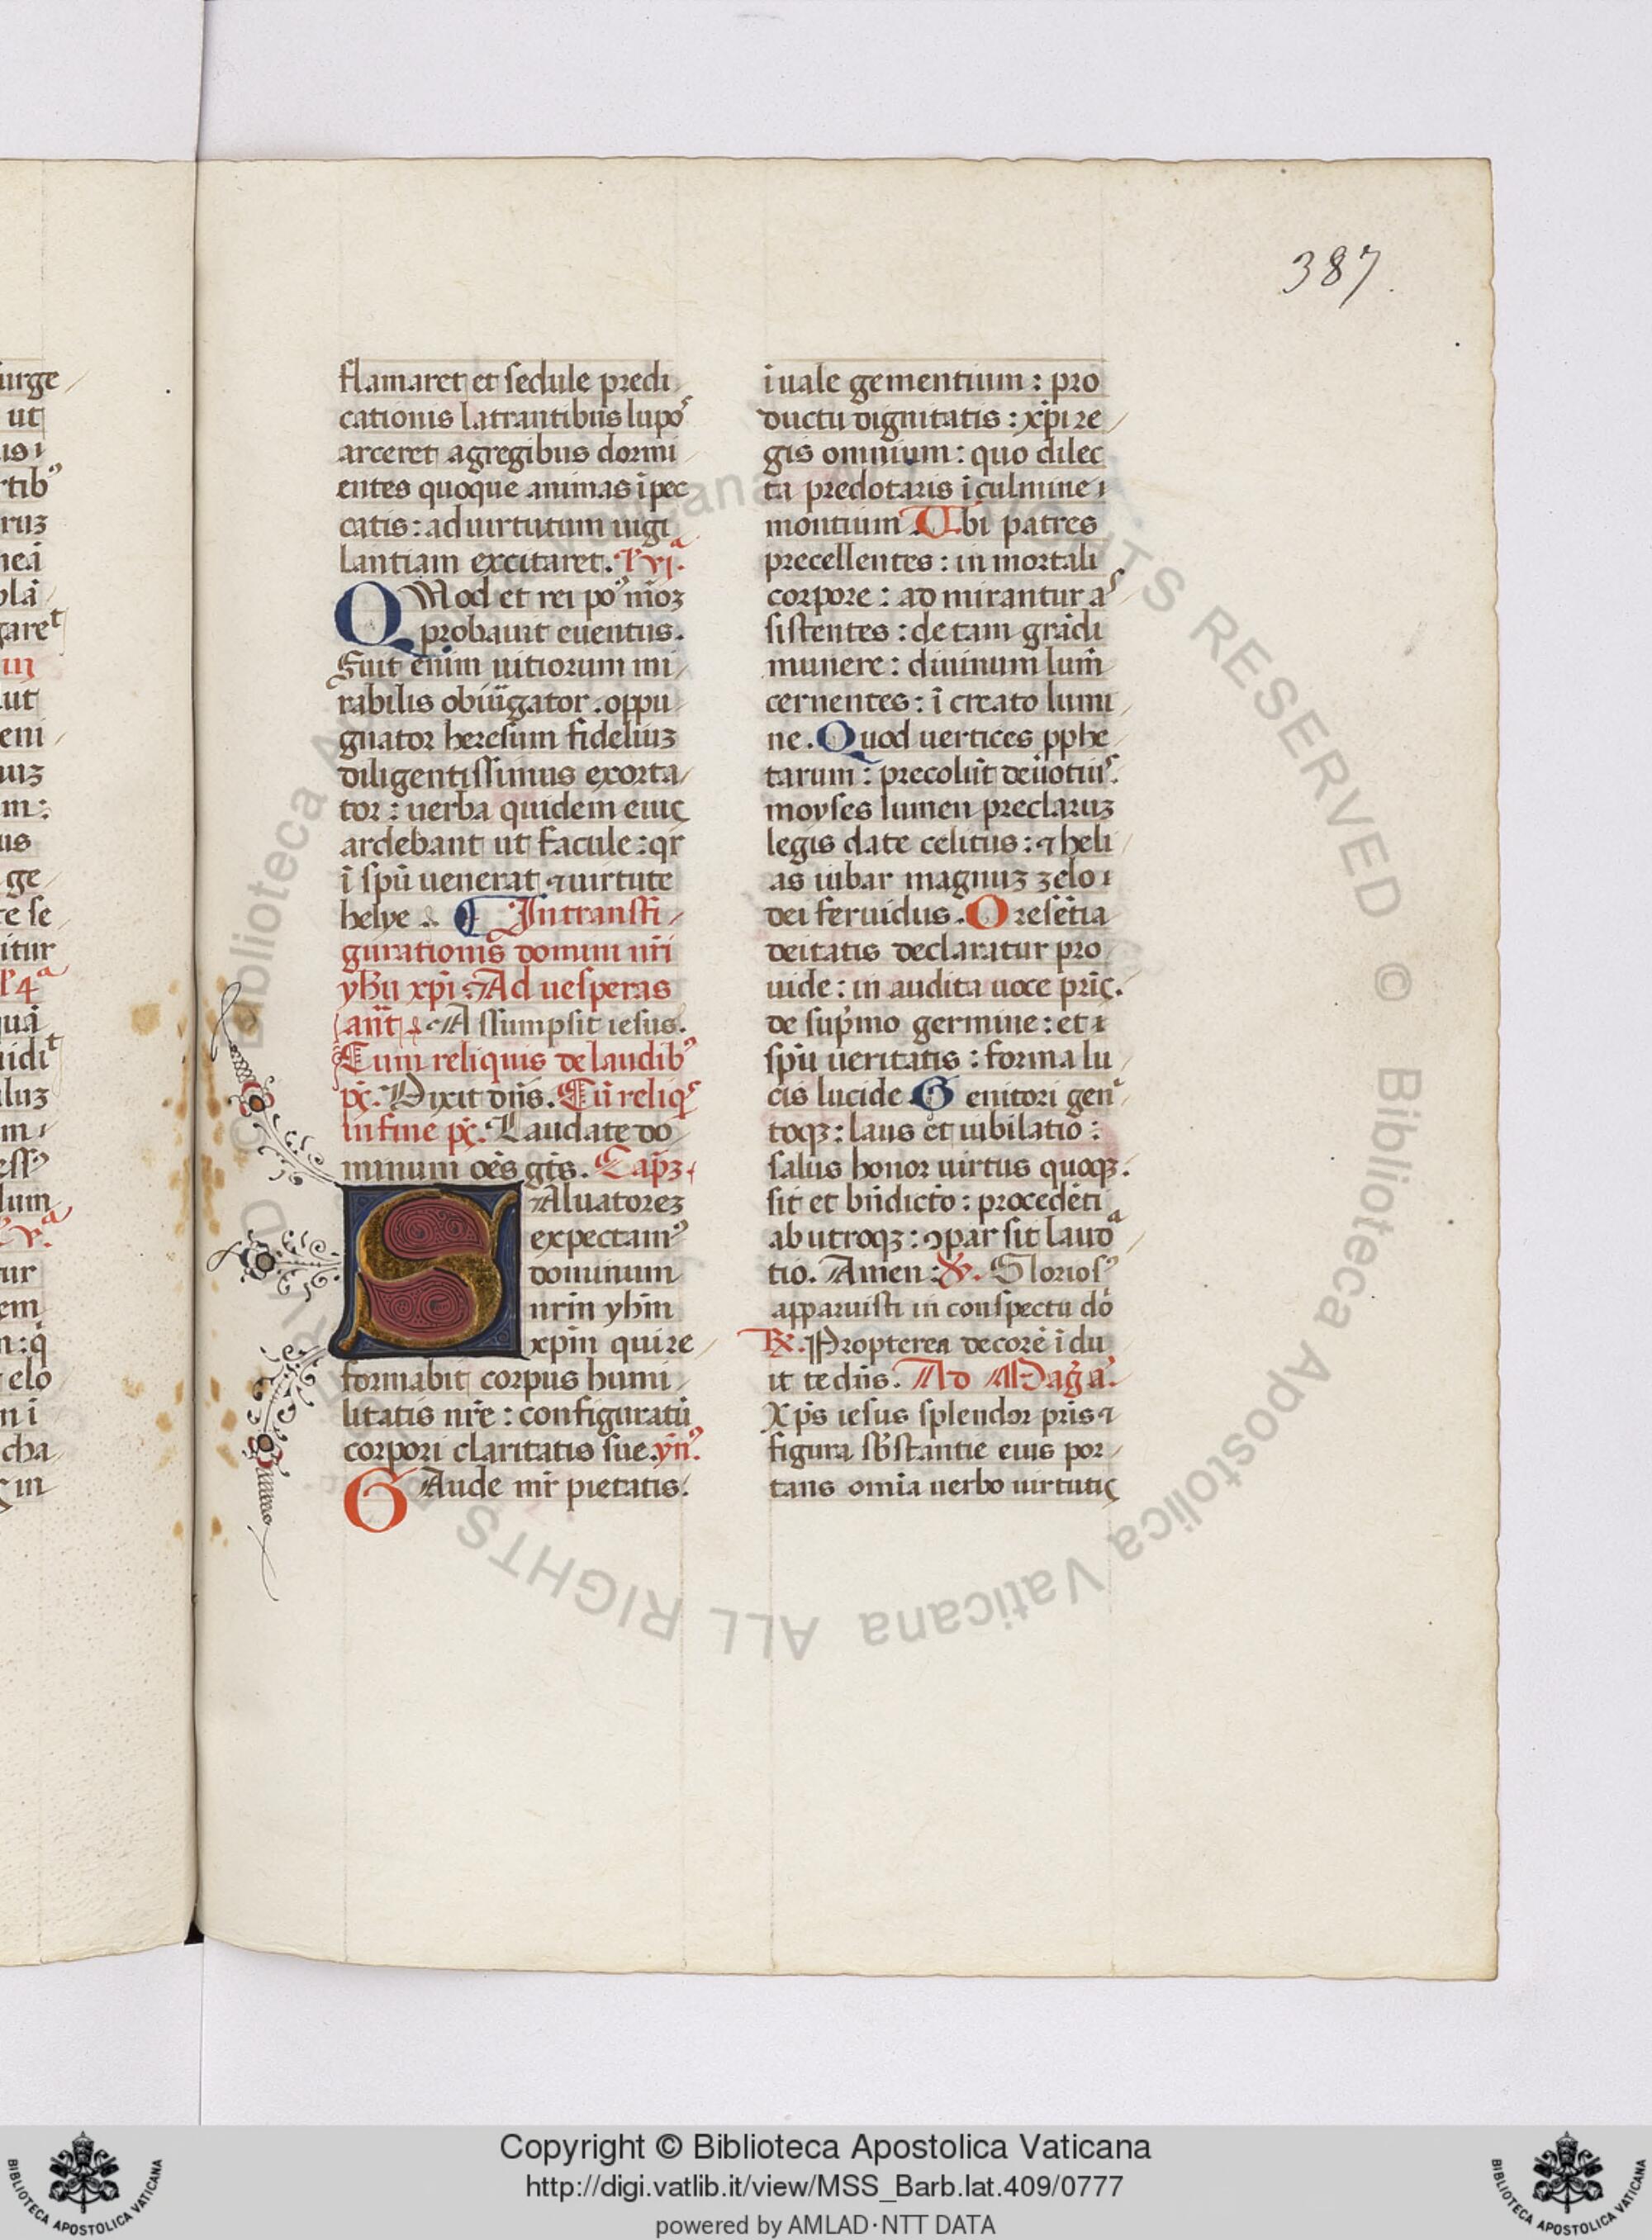 387.
urge
ut
us i
tib᷒
ruꝫ
neā
olā
garet
iij
ut
eni
uiꝫ
m:
us
ge
te se
itur
l'4a
quā
uidit
luꝫ
m
ess᷒
lum
l' va
ur
em
n: q̄
elo
n i
cha
in
flamaret et sedule predi
cationis latrantibus lupos
arceret agregibus dormi
entes quoque animas ī pec
catis: ad uirtutum uigi
lantiam excitaret. l' vja.
QVod et rei po᷒ nioꝫ
probauit euentus.
Fuit enim uitiorum mi
rabilis obiurgator. oppu
gnator heresum fideliuꝫ
diligentissimus exorta
tor: uerba quidem eius
ardebant ut facule: qr̄
ī spū uenerat ⁊ uirtute
helye. In transfi
gurationis domini nr̄i
yhū xp̄i Ad uesperas
an̄t. Assumpsit iesus.
Cum reliquis de laudib᷒
ps. Dixit dn̄s. Cū reliqs
In fine ps. Laudate do
minum oēs gēs. Capꝫ
SAluatoreꝫ
expectam᷒
dominum
nrm̄ yhm̄
xpm̄ qui re
formabit corpus humi
litatis nrē: configuratū
corpori claritatis sue. yn᷒.
GAude mr̄ pietatis.
ī uale gementium: pro
ductu dignitatis: xp̄i re
gis omnium: quo dilec
ta predotaris ī culmine
montium Vbi patres
precellentes: in mortali
corpore: admirantur as
sistentes: de tam grādi
munere: diuinum lum̄
cernentes: ī creato lumi
ne. Quod uertices pphe
tarum: precolūt deuotius.
moyses lumen preclaruꝫ
legis date celitus: ⁊ heli
as iubar magnuꝫ zelo
dei feruidus. Oresētia
deitatis declaratur pro
uide: in audita uoce pris.
de sup̄mo germine: et
spū ueritatis: forma lu
cis lucide. Genitori gen
toqꝫ: laus et iubilatio:
salus honor uirtus quoqꝫ.
sit et bn̄dicto: procedēti
ab utroqꝫ: ꝯpar sit lauda
tio. Amen: ℣. Glorios᷒
apparuisti in conspectu do
℟. Propterea decorē ī du
it te dn̄s. Ad Mag̃a.
Xp̄s iesus splendor pris ⁊
figura sb̄stantie eius por
tans omīa uerbo uirtutis
Biblioteca Apostolica Vaticana ALL RIGHTS RESERVED ©
Copyright © Biblioteca Apostolica Vaticana
http://digi.vatlib.it/view/MSS_Barb.lat.409/0777
powered by AMLAD·NTT DATA
BIBLIOTECA APOSTOLICA VATICANA
BIBLIOTECA APOSTOLICA VATICANA